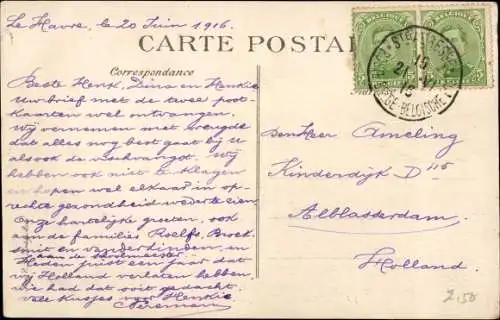 Le Havre, le 20 Juin 1916.
CARTE POSTAL
Correspondance
Beste Henk, Dina en Henkie
Uw brief met de twee post-
kaarten wel ontvangen.
Wij vernemen met vreugde
dat alles nog best gaat bij U
alsook de
hebben ook niet te klagen
en hopen wel elkaar in op-
rechte gezondheid weder te zien.
Onze hartelijke groeten, ook
aan de families Roelfs, Broek
smit en van der hinden, en
aan de
Heden juist een jaar dat
wij Holland verlaten hebben,
wie had dat ooit gedacht.
Vele kusjes voor Henkie
BELGIE
5
BELGIE
5
STE ADRESSE
19
21 VI
16
BELGISCHE
Den Heer Ameling
Kinderdijk D 115
Alblasserdam.
Holland.
2.50